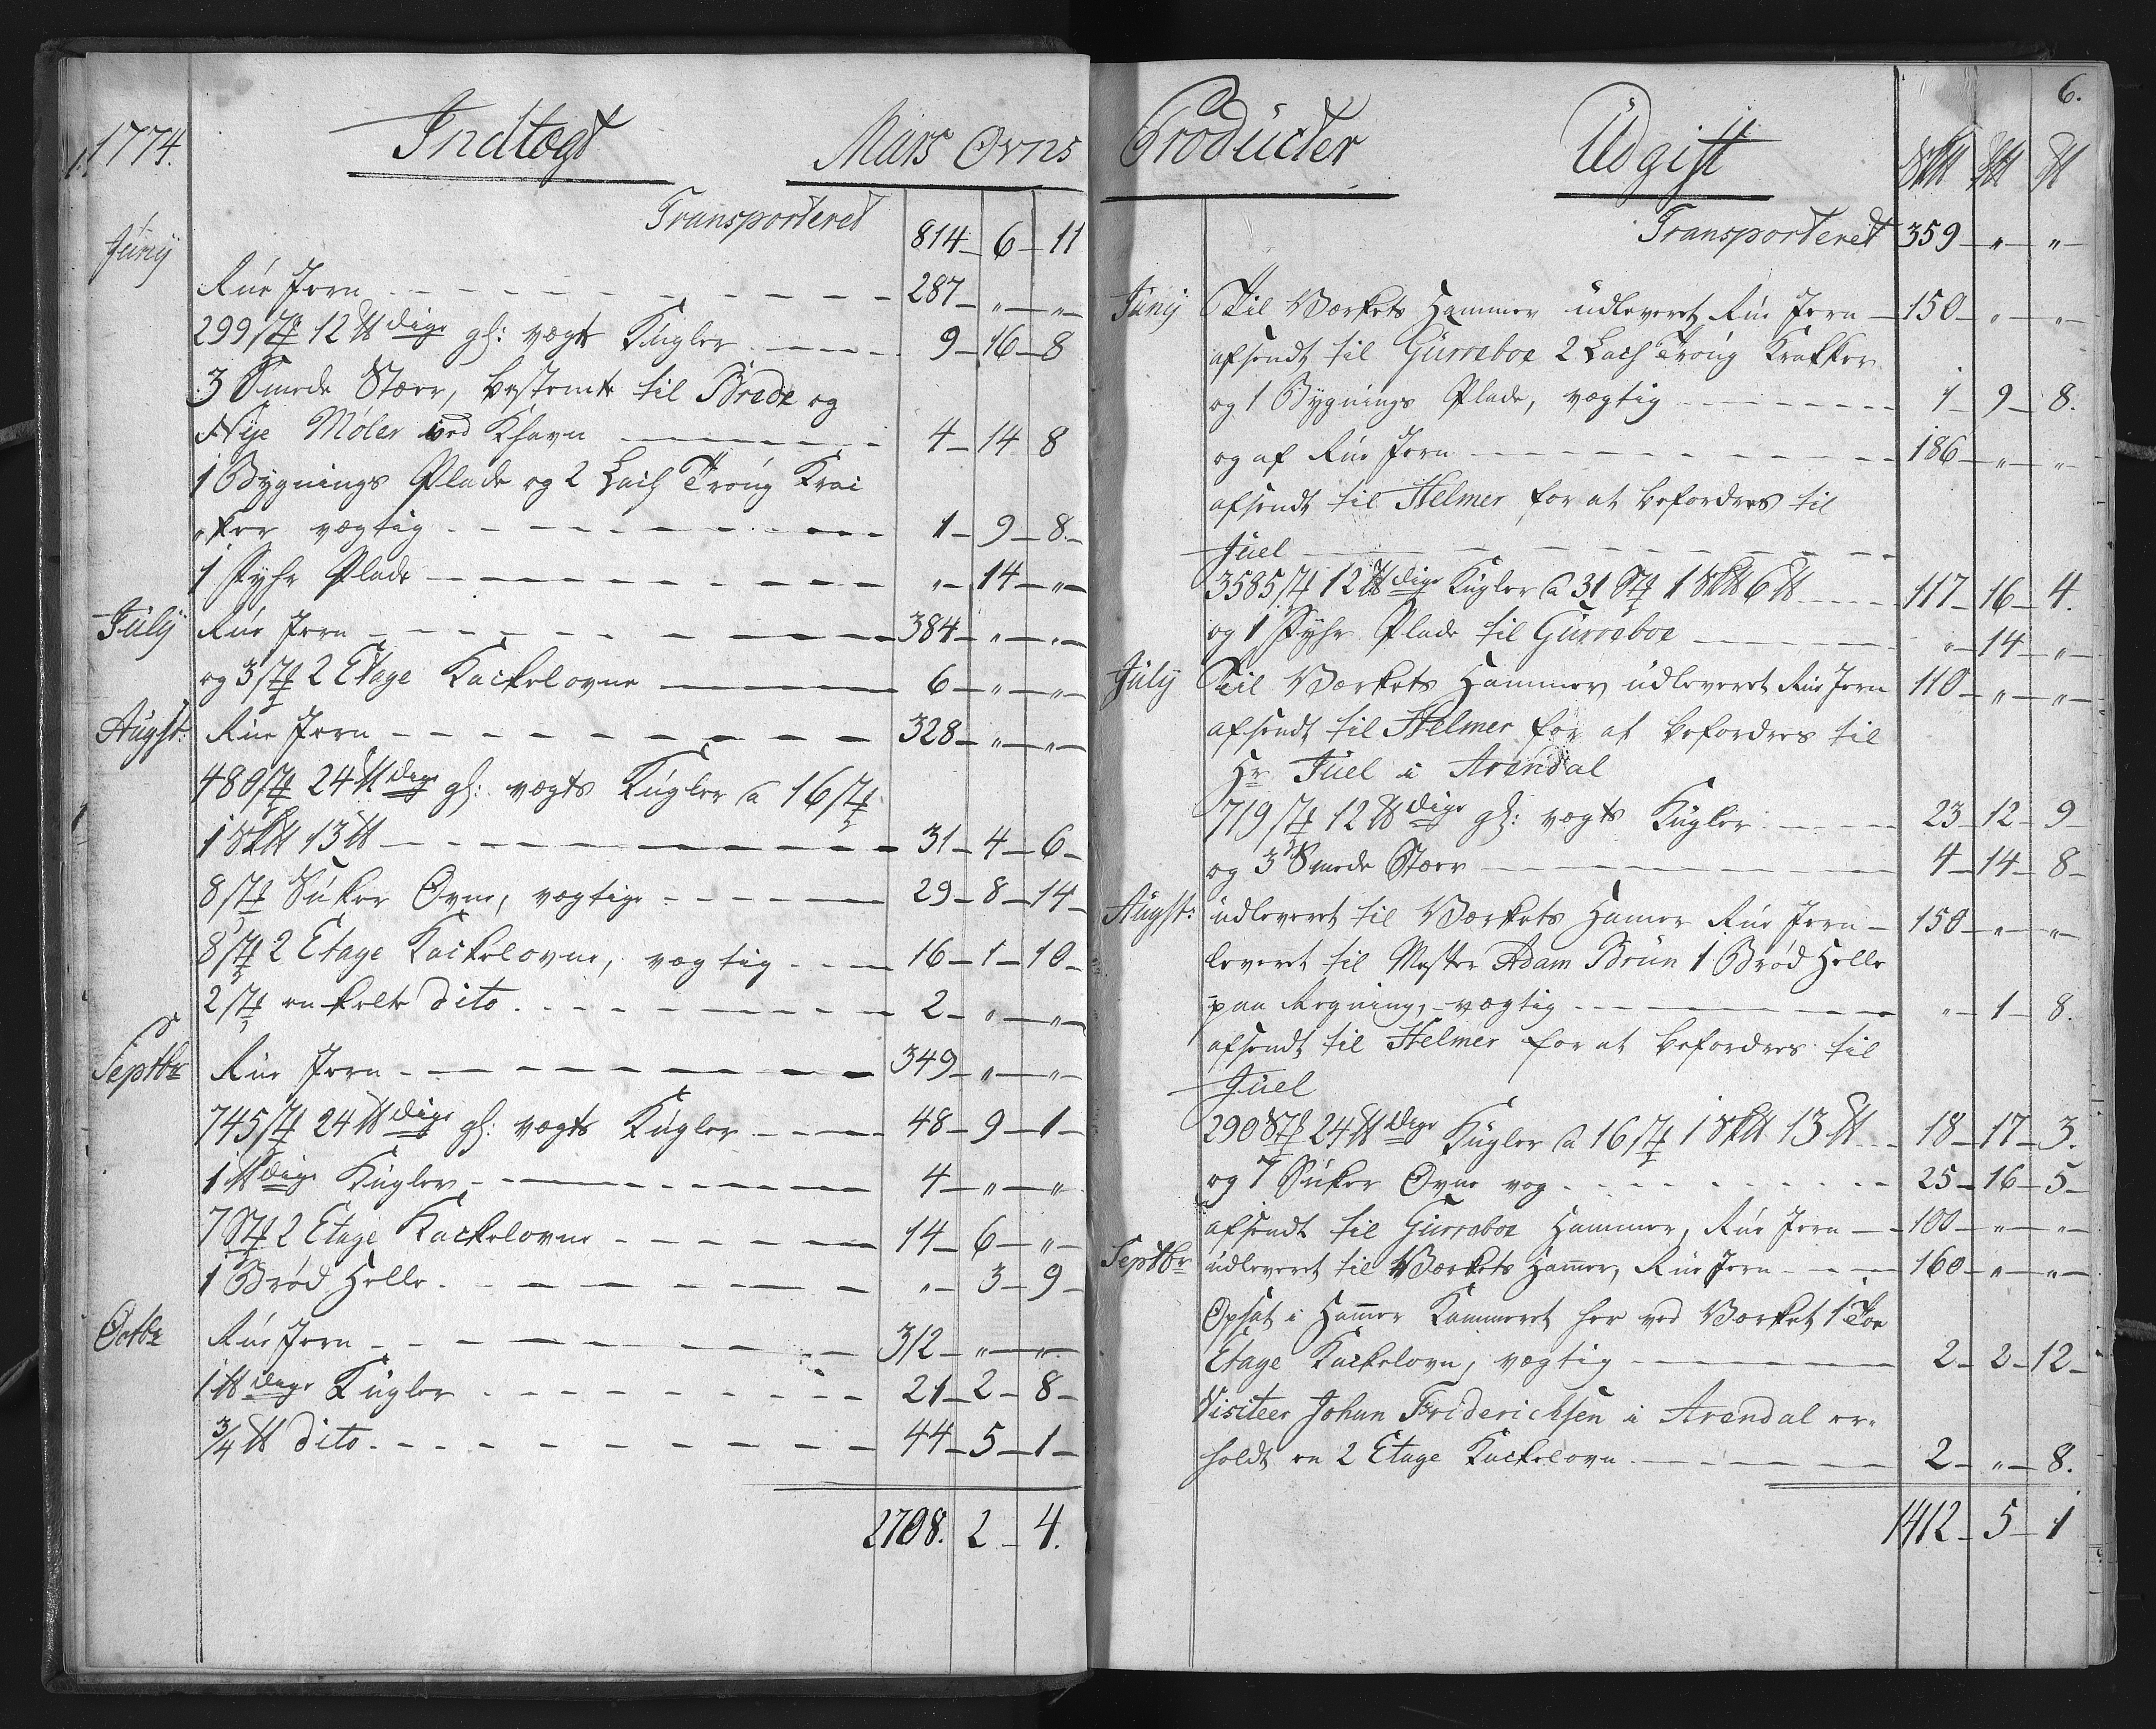 1774.
Indtægt
Mars Ovns
Transporteret 814 - 6 - 11
Juny
Rue Jern - 287 - „ - „
299 st 12 ℔dige gl: vægts Kugler - 9 - 16 - 8
3 Smede Stæer, bestemte til Brede og
Nye Møler ved Khavn - 4 - 14 8
1 Bygnings Plade og 2 Lach Troug Krai
„ker vægtig - 1 - 9 - 8 -
1 Fyhr Plade - „ - 14 - „
July Rue Jern - 384 - „ - „
og 3 st 2 Etage Kackelovne - 6 - „ - „
Augst: Rue Jern - 328 - „ - „
480 st 24 ℔dige gl: vægts Kugler a 16 st
1 S℔ 13 ℔ - 31 - 4 - 6 -
8 st Suker Ovne, vægtige - 29 - 8 - 14 -
8 st 2 Etage Kackelovne, vægtig - 16 - 1 - 10 -
2 st enkelte dito - 2 - „ - „
Septbr Rue Jern - 349 - „ - „
745 st 24 ℔dige gl: vægts Kugler - 48 - 9 - 1 -
1 ℔dige Kugler - 4 - „ - „
7 St 2 Etage Kackelovne - 14 - 6 - „
1 Brød Helle - „ - 3 - 9 -
Octbr Rue Jern - 312 - „ - „
1 ℔dige Kugler - 21 - 2 - 8 -
3/4 ℔ dito - 44 - 5 - 1 -
2708. 2 - 4.
6.
Producter
Udgift
S℔ L℔ ℔
Transporteret 359 - „ - „
Juny Til Værkets Hammer udleveret Rue Jern - 150 - „ - „
afsendt til Gurreboe 2 Lach Troug Krakker
og 1 Bygnings Plade, vægtig - 1 - 9 - 8.
og af Rue Jern - 186 - „ - „
afsendt til Helmer for at befordres til
Juel
3585 st 12 ℔dige Kugler a 31 St 1 S℔ 6 ℔ - 117 - 16 - 4.
og 1 Fyhr Plade til Gurreboe - „ - 14 - „
July Til Værkets Hammer udleveret Rue Jern 110 - „ - „
afsendt til Helmer for at befordres til
Hr Juel i Arendal
719 st 12 ℔dige gl: vægts Kugler - 23 - 12 - 9
og 3 Smede Stæer - 4 - 14 - 8 -
Augst: udleveret til Værkets Hamer Rue Jern - 150 - „ - „
leveret til Mester Adam Brun 1 Brød Helle
paa Regning, vægtig - „ - 1 - 8.
afsendt til Helmer for at befordres til
Juel
290 St 24 ℔dige Kugler a 16 st 1 S℔ 13 ℔ - 18 - 17 - 3.
og 7 Suker Ovne vog - 25 - 16 - 5 -
afsendt til Gurreboe Hammer, Rue Jern - 100 - „ - „
Septbr udleveret til Værkets Hamer, Rue Jern - 160 - „ - „
Opsat i Hamer Kammeret her ved Værket 1 Toe
Etage Kackelovn, vægtig - 2 - 2 - 12 -
Visiteer Johan Friderichsen i Arendal er„
holdt en 2 Etage Kackelovn - 2 - „ - 8.
1412 - 5 - 1